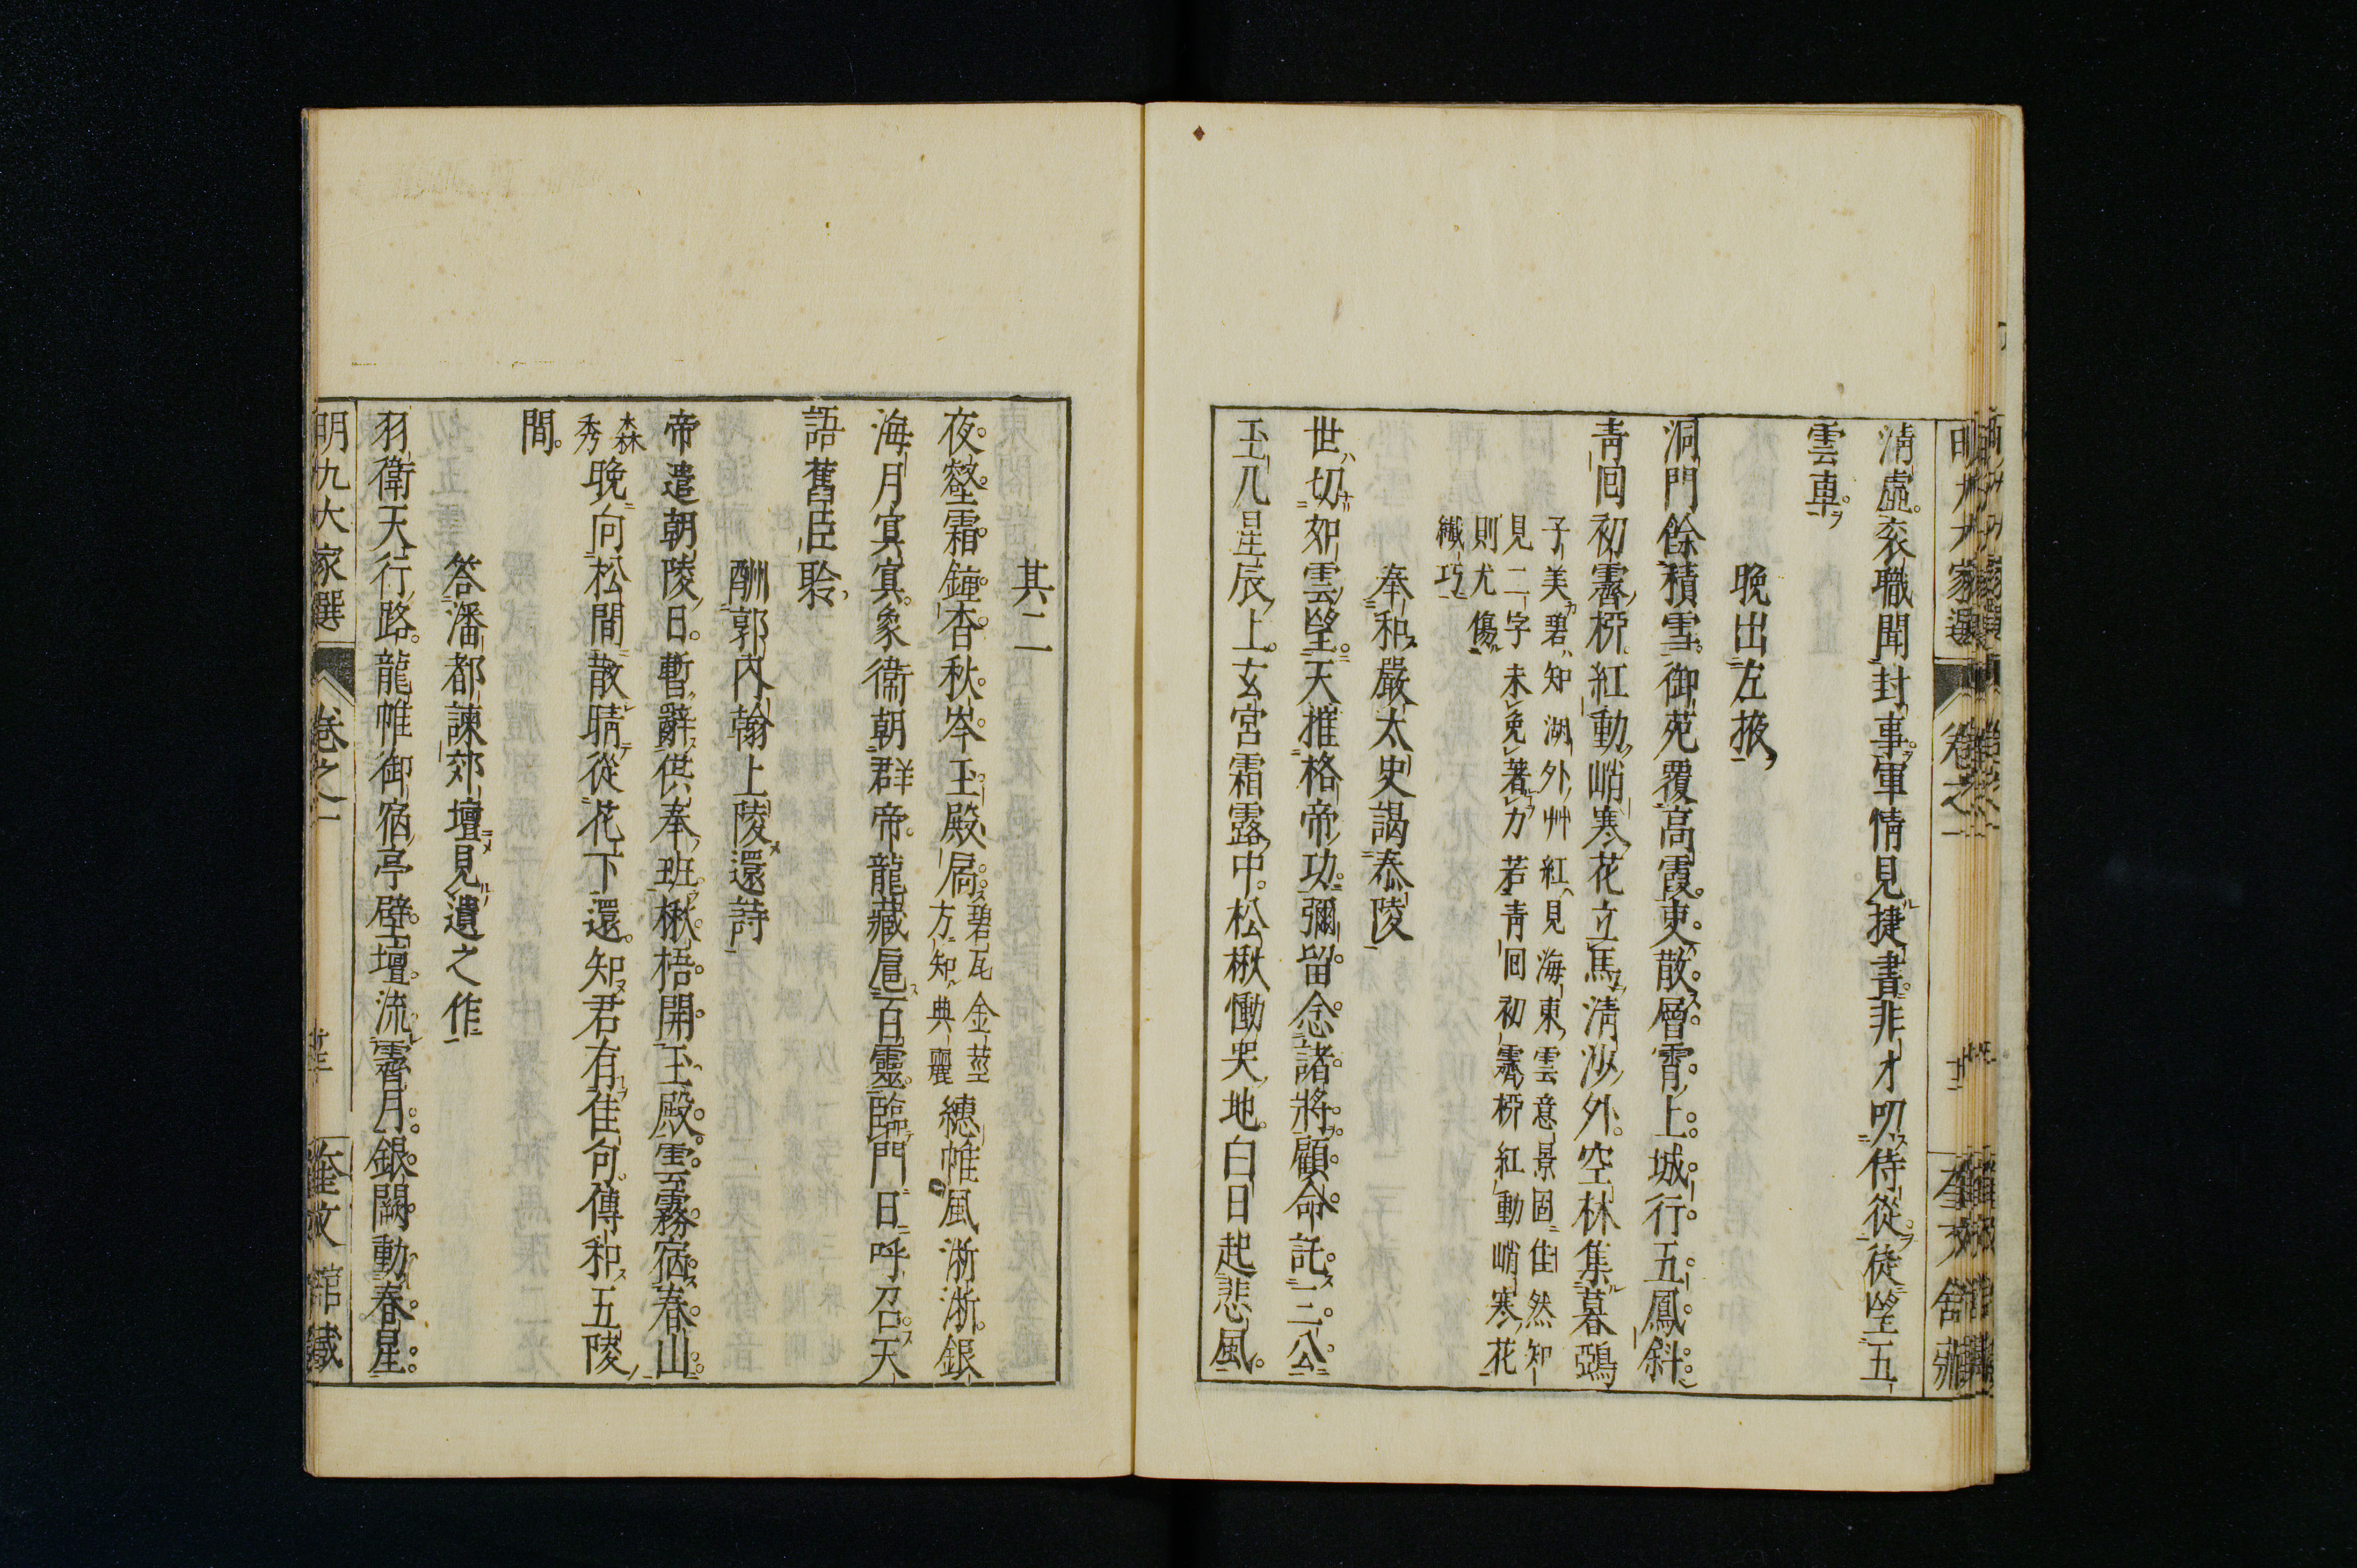 淸虛袞職聞封事軍情見捷書非才叨侍從徒望五
雲車
晚出左掖
洞門餘積雪御苑覆高霞吏散層霄上城行五鳳斜
靑回初霽桺紅動峭寒花立馬淸沙外空林集暮鵶
子美碧知湖外艸紅見海東雲意景固佳然知
見二字未免著力若靑回初霽桺紅動峭寒花
則尤傷
纎巧
奉和嚴太史謁泰陵
世切如雲望天摧格帝功彌留念諸將顧命託三公
玉几星辰上玄宮霜露中松楸慟哭地白日起悲風
其二
夜壑霜鐘杳秋岑玉殿扃
碧瓦金莖
方知典麗
繐帷風淅淅銀
海月寘寘象衞朝群帝龍藏扈百靈臨門日呼召天
語舊臣聆
酬郭內翰上陵還詩
帝遣朝陵日暫辭供奉班楸梧開玉殿雲霧宿春山
森
秀
晚向松間散晴從花下還知君有佳句傳和五陵
間
答潘都諫郊壇見遺之作
羽衛天行路龍帷御宿亭壁壇流霽月銀闕動春星
明九大家選
卷之一
奎文館藏